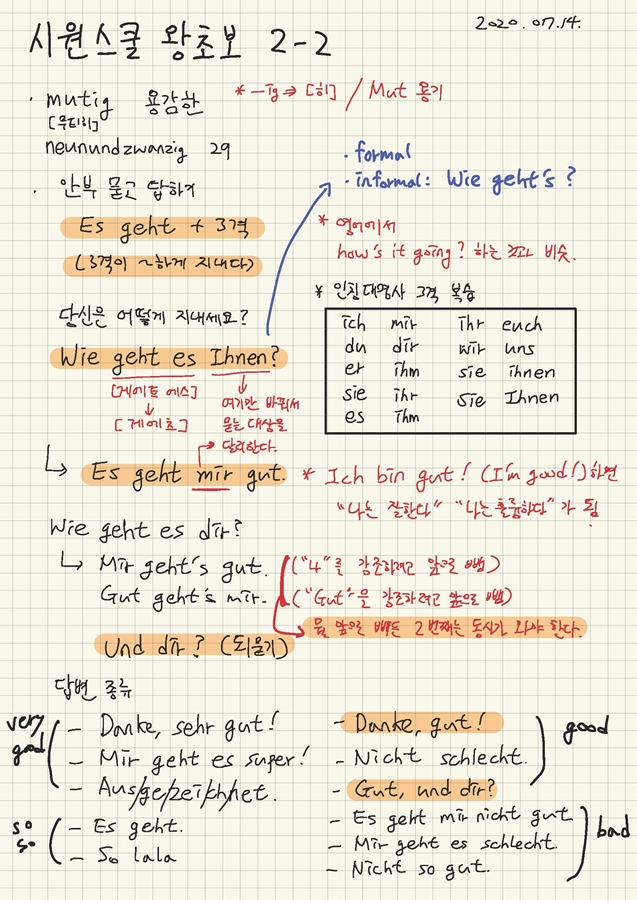 시원스쿨 왕초보 2-2
2020.07.14.
· mutig 용감한 * -ig ⇒ [히] / Mut 용기
[무티히]
neunundzwanzig 29
· 안부 묻고 답하기
· formal
· informal: Wie geht's?
Es geht + 3격
(3격이 ~하게 지내다)
* 영어에서
how's it going? 하는 것과 비슷.
당신은 어떻게 지내세요?
Wie geht es Ihnen?
[게에트 에스]
↓
[게에츠]
↓
여기만 바꿔서
묻는 대상을
달리한다.
* 인칭대명사 3격 복습
ich mir ihr euch
du dir wir uns
er ihm sie ihnen
sie ihr Sie Ihnen
es ihm
↳ Es geht mir gut.
* Ich bin gut! (I'm good!)하면
"나는 잘한다" "나는 훌륭하다"가 됨.
Wie geht es dir?
↳ Mir geht's gut. ("나"를 강조하려고 앞으로 뺌)
Gut geht's mir. ("Gut"을 강조하려고 앞으로 뺌)
→ 뭘 앞으로 빼든 2번째는 동사가 와야 한다.
Und dir? (되묻기)
답변 종류
very good
- Danke, sehr gut!
- Mir geht es super!
- Aus/ge/zeich/net.
so so
- Es geht.
- So lala
- Danke, gut!
- Nicht schlecht.
good
- Gut, und dir?
- Es geht mir nicht gut.
- Mir geht es schlecht.
- Nicht so gut.
bad